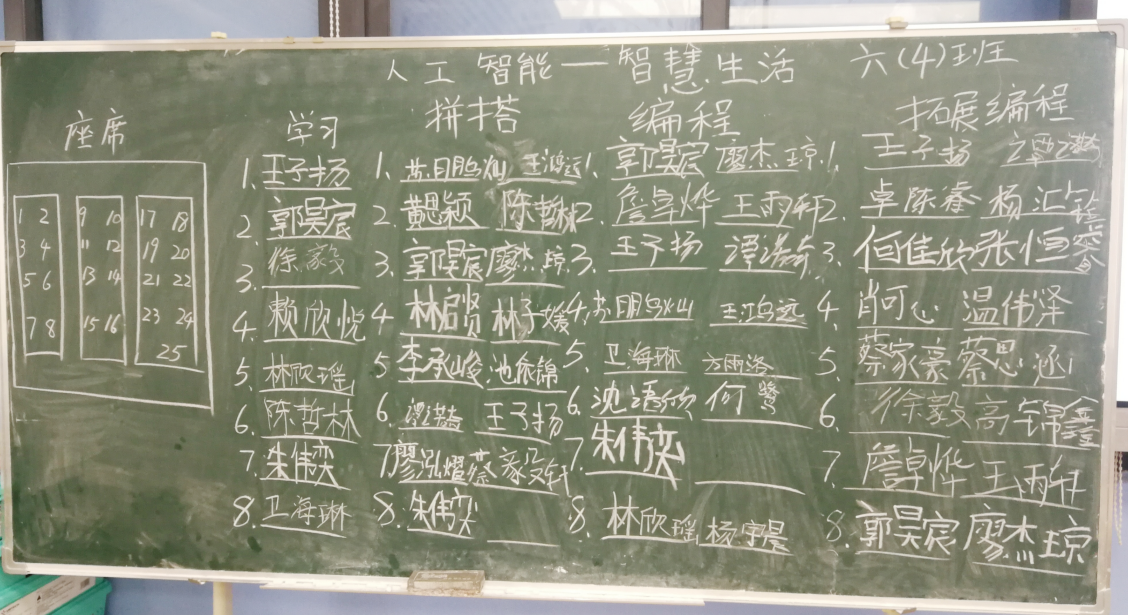 人工智能一智慧生活 六(4)班
座席 学习 拼搭 编程 拓展编程
1 2 9 10 17 18
3 4 11 12 19 20
5 6 13 14 21 22
7 8 15 16 23 24
25
1. 王子扬
2. 郭昊宸
3. 徐毅
4. 赖欣悦
5. 林欣瑶
6. 陈哲林
7. 朱伟奕
8. 卫海琳
1. 苏明鹏灿 王鸿远
2. 黄思颖 陈哲林
3. 郭昊宸 廖杰琼
4 林启贤 林子媛
5 李承峻 池依锦
6. 王子扬
7 廖泓熠 蔡毅轩
8. 朱伟奕
1. 郭昊宸 廖杰琼
2. 詹卓烨 王雨轩
3. 王子扬
4. 苏明鹏灿 王鸿远
5. 卫海琳 方雨洛
6. 何鹭
7. 朱伟奕
8. 林欣瑶 杨宇晨
1. 王子扬
2. 卓陈睿 杨汇
3. 伯佳欣 张恒睿
4. 肖可心 温伟泽
5. 蔡家豪 蔡思涵
6. 徐毅 高锦鑫
7. 詹卓烨 王雨轩
8. 郭昊宸 廖杰琼